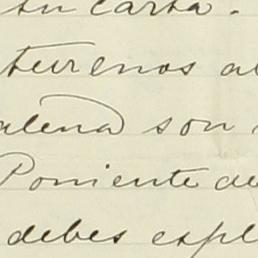 su carta.
terrenos a
alena son
Poniente de
debes expl